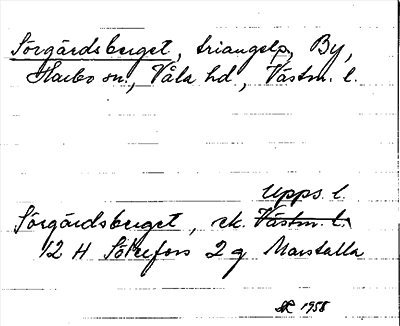 Sörgårdsberget, triangelp, By,
Harbo sn., Våla hd, Västm. l.
Upps. l.
Sörgårdsberget, rk. Västm. l.
12 H Söderfors 2 g Marstalla
1958